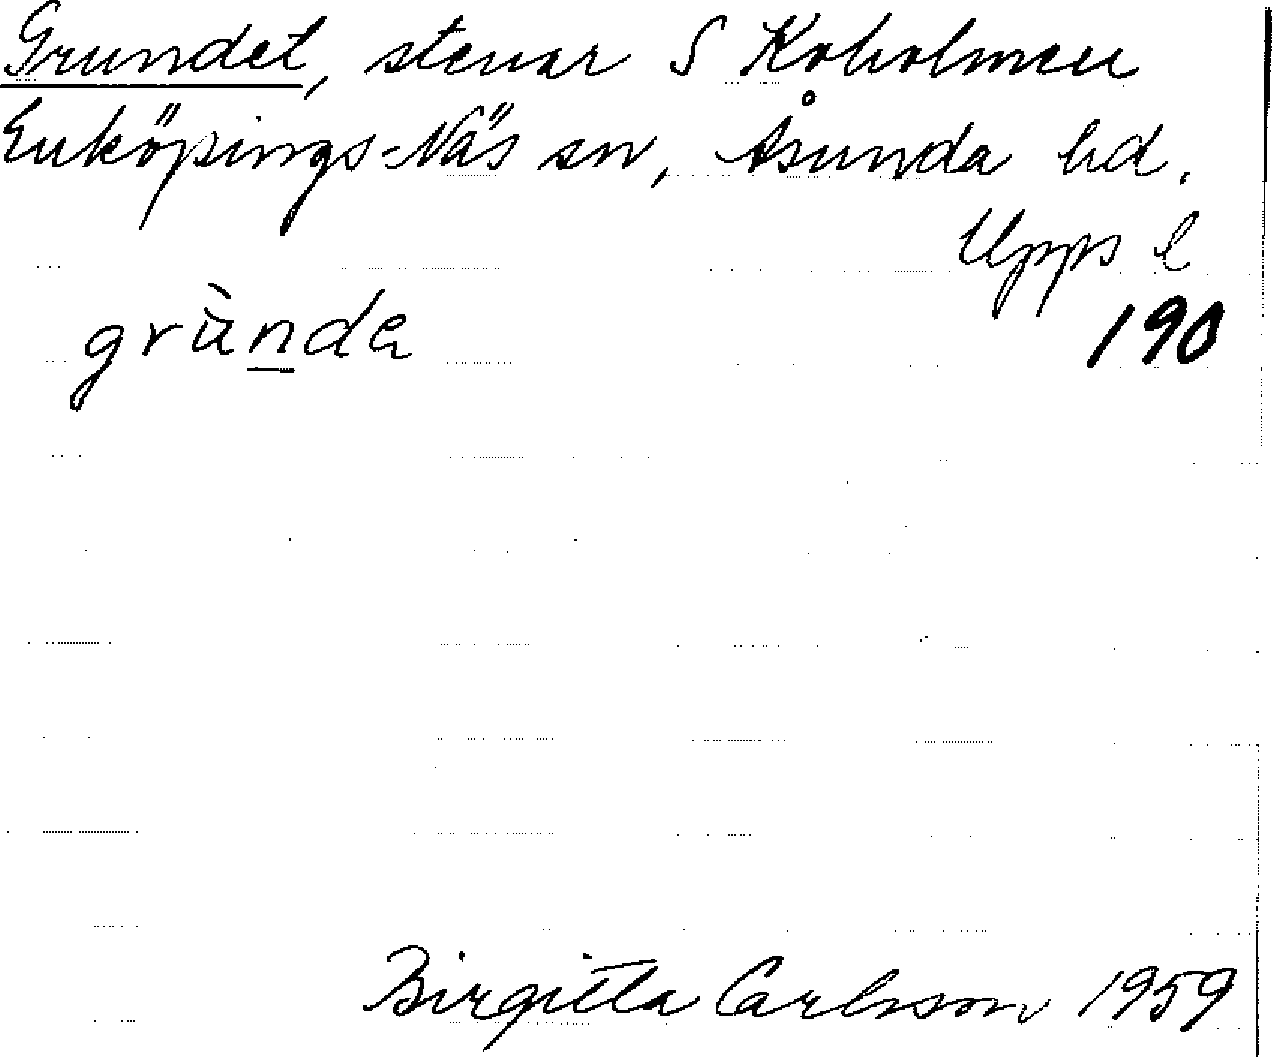 Grundet, stenar S Koholmen
Enköpings-Näs sn, Åsunda hd.
Upps l
grùnda
190
Birgitta Carlsson 1959